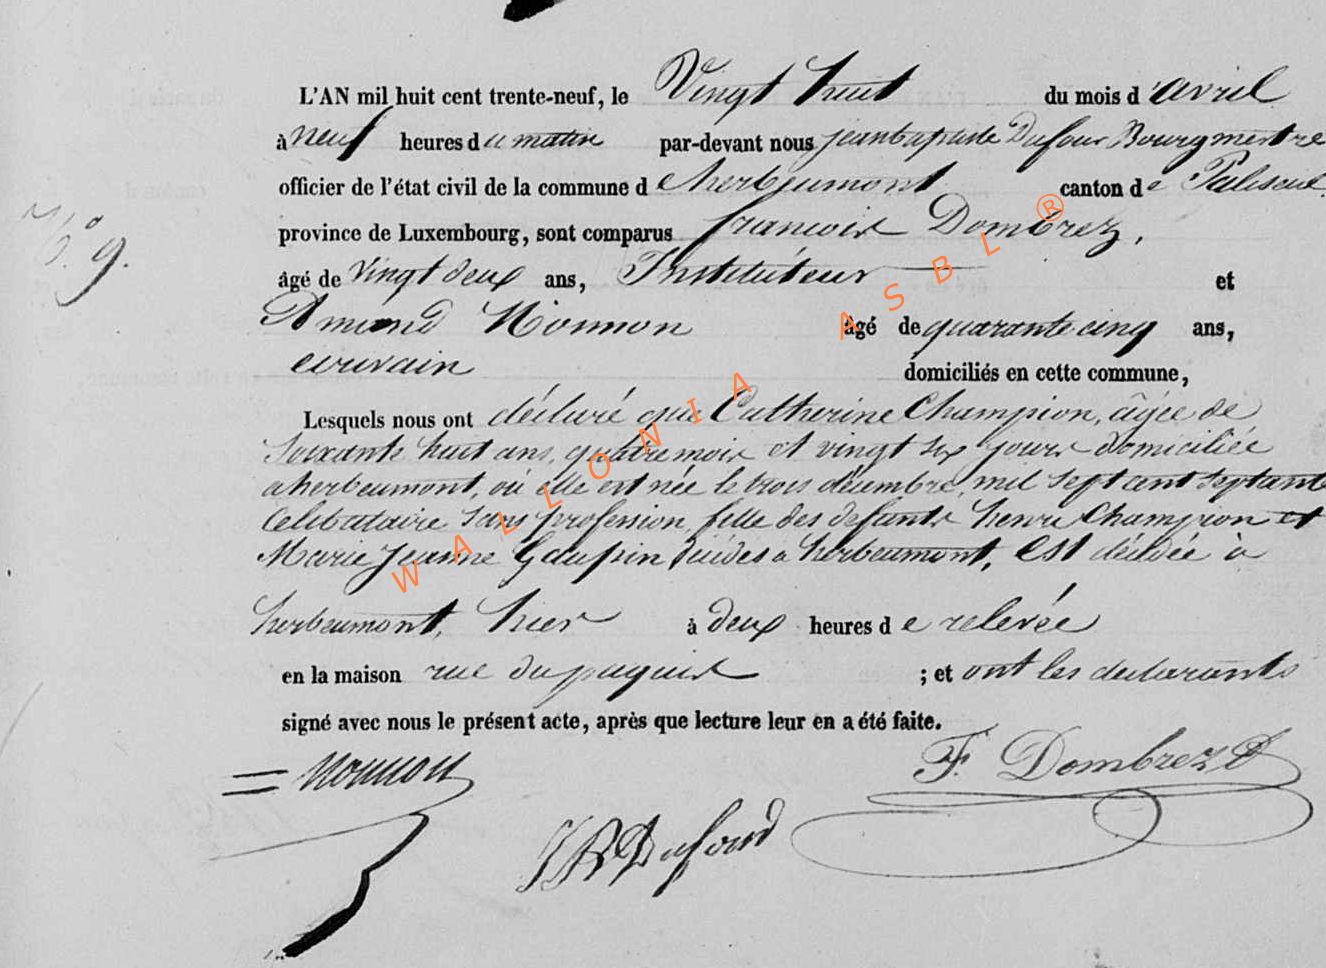 L'AN mil huit cent trente-neuf, le Vingt huit du mois d'avril
à neuf heures du matin par-devant nous jeanbaptiste Dufour Bourgmestre
officier de l'état civil de la commune d'herbeumont canton de Paliseul
province de Luxembourg, sont comparus francoix Dombrez,
Nº 9.
âgé de vingt deux ans, Instituteur et
Amand Nonnon âgé de quarante cinq ans,
ecrivain domiciliés en cette commune,
Lesquels nous ont déclaré que Catherine Champion, âgée de
Soixante huit ans, quatre moix et vingt six jours domiciliée
a herbeumont, où elle est née le trois décembre, mil sept cent septante
Celibataire sans profession, fille des defunts henri Champion et
Marie Jeanne Gaupin à herbeumont, Est décédée à
herbeumont, hier à deux heures de relevée
en la maison rue du paquis ; et ont les declarants
signé avec nous le présent acte, après que lecture leur en a été faite.
Nonnon F. Dombrez
JB Dufour
WALLONIA ASBL ®